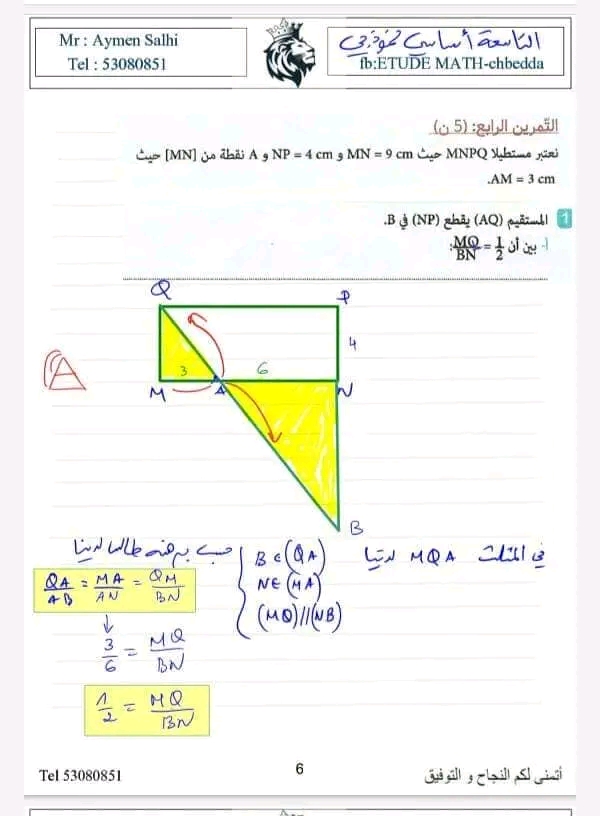 Mr : Aymen Salhi
Tel : 53080851
التاسعة أساسي نموذجي
fb:ETUDE MATH-chbedda
التّمرين الرابع: (5 ن)
نعتبر مستطيلا MNPQ حيث MN = 9 cm و NP = 4 cm و A نقطة من [MN] حيث
AM = 3 cm.
1 المستقيم (AQ) يقطع (NP) في B.
أ- بين أن MQ/BN = 1/2:
Q
P
4
A
3
6
M
A
N
B
في المثلث MQA لدينا
B ∈ (QA)
N ∈ (MA)
(MQ)//(NB)
حسب مبرهنة طالس لدينا
QA/AB = MA/AN = QM/BN
↓
3/6 = MQ/BN
1/2 = MQ/BN
Tel 53080851
6
أتمنى لكم النجاح و التوفيق